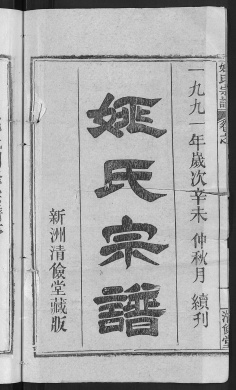 一九九一年歲次辛未 仲秋月 續刊
姚氏宗譜
新洲清儉堂藏版
姚氏宗譜
清儉堂